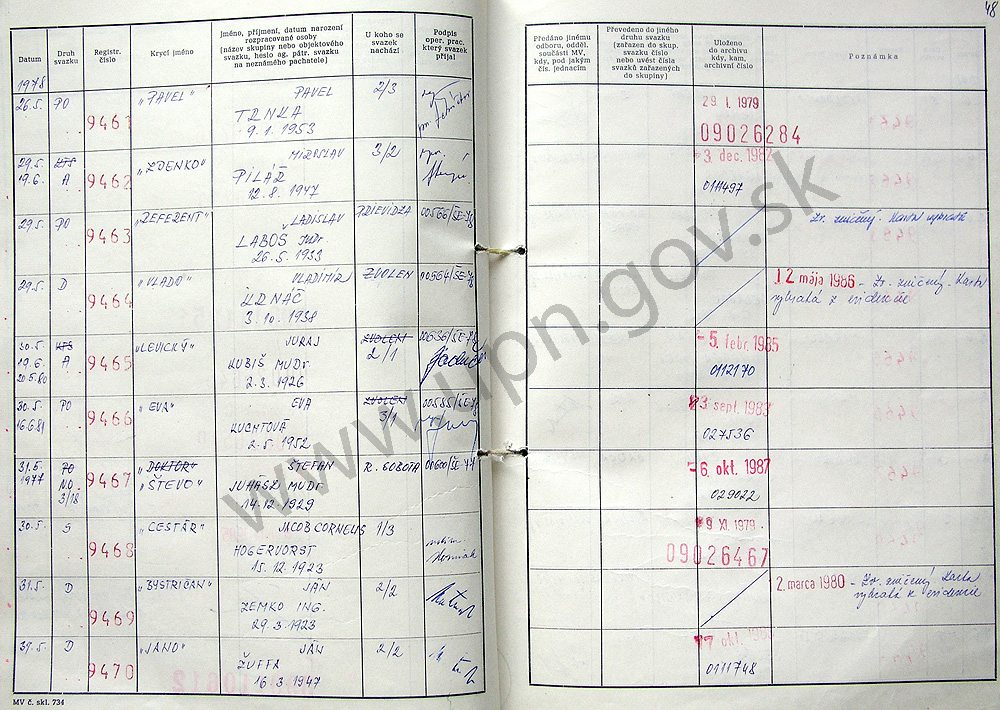 48
Datum
Druh svazku
Registr. číslo
Krycí jméno
Jméno, příjmení, datum narození rozpracované osoby (název skupiny nebo objektového svazku, heslo ag. pátr. svazku na neznámého pachatele)
U koho se svazek nachází
Podpis oper. prac. který svazek přijal
Předáno jinému odboru, odděl. součásti MV, kdy, pod jakým čís. jednacím
Převedeno do jiného druhu svazku (zařazen do skup. svazku číslo nebo uvést čísla svazků zařazených do skupiny)
Uloženo do archivu kdy, kam, archivní číslo
Poznámka
1978
26.5. PO 9461 "PAVEL" PAVEL 2/3
TRNKA
9.1.1953
29.I.1979
09026284
29.5. KTS 9462 "ZDENKO" MIROSLAV 3/2
19.6. A PILÁŘ
12.8.1947
3. dec. 1982
0111497
29.5. PO 9463 "REFERENT" LADISLAV PRIEVIDZA 00566/ŠE-78
LABOŠ JUDr
26.5.1933
Zv. zničený. Karta vybratá
29.5. D 9464 "VLADO" VLADIMÍR ZVOLEN 00564/ŠE-78
3.10.1938
12 mája 1986 - Zv. zničený. Karta
vybratá z evidencie
30.5. KTS 9465 "LEVICKÝ" JURAJ ZVOLEN 00636/ŠE-78
19.6. A KUBIŠ MUDr. 2/1
20.5.80 2.3.1926
- 5. febr. 1985
0112170
30.5. PO 9466 "EVA" EVA ZVOLEN 00585/ŠE-78
16.6.81 KUCHTOVÁ 3/1
2.5.1952
23 sept. 1983
027536
31.5. PO 9467 "DOKTOR" ŠTEFAN R. SOBOTA 01600/ŠE-77
1977 NO "ŠTEVO" JUHÁSZ MUDr
3/18 14.12.1929
- 6. okt. 1987
029022
30.5. S 9468 "CESTÁR" JACOB CORNELIS 1/3
HOGERVORST
15.12.1923
9 XI. 1979
09026467
31.5. D 9469 "BYSTRIČAN" JÁN 2/2
ZEMKO ING.
29.3.1923
2. marca 1980 - Zv. zničený Karta
vybratá z evidencie
31.5. D 9470 "JANO" JÁN 2/2
ŽUFFA
16.3.1947
0111748
MV č. skl. 734
www.upn.gov.sk